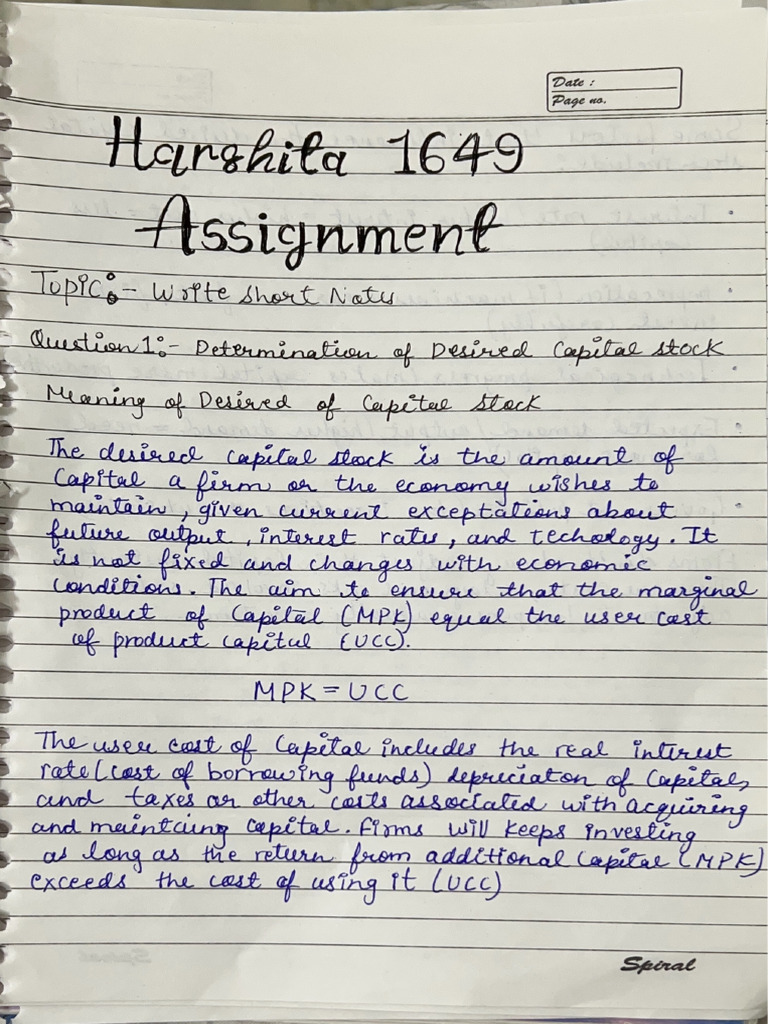 Date :
Page no.
Harshita 1649
Assignment
Topic:- Write Short Notes
Question 1:- Determination of Desired Capital stock
Meaning of Desired of Capital Stock
The desired capital stock is the amount of
Capital a firm or the economy wishes to
maintain, given current exceptations about
future output, interest rates, and techology. It
is not fixed and changes with economic
conditions. The aim to ensure that the marginal
product of Capital (MPK) equal the user cost
of product capital (UCC).
MPK = UCC
The user cost of Capital includes the real interest
rate (cost of borrowing funds) depreciaton of Capital,
and taxes or other costs associated with acquiring
and maintaing capital. Firms will keeps investing
as long as the return from additional Capital (MPK)
exceeds the cost of using it (UCC)
Spiral